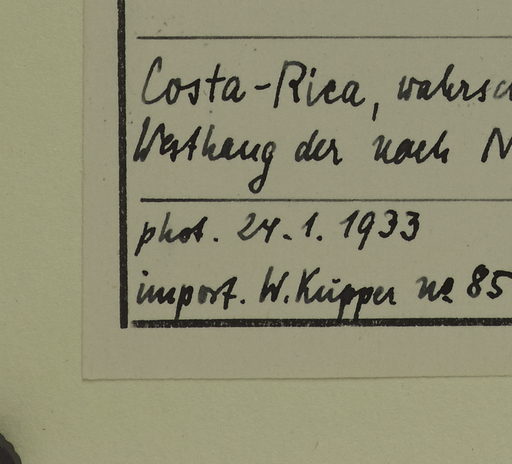 Costa-Rica, wahrsch
Westhang der nach N
phot. 24.1.1933
import. W. Küpper no 85